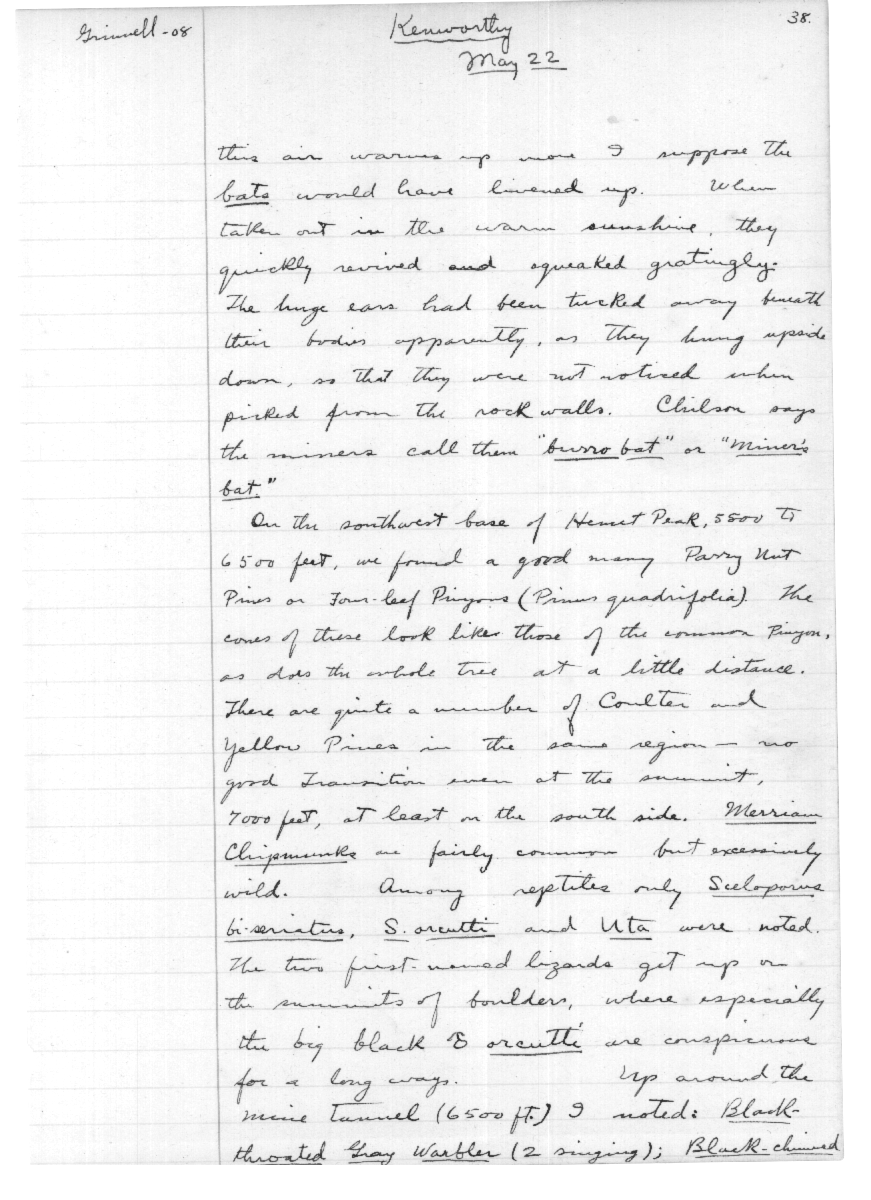 Grinnell-08
Kenworthy
38.
May 22
this air warms up more I suppose the
bats would have livened up. When
taken out in the warm sunshine, they
quickly revived and squeaked gratingly.
The huge ears had been tucked away beneath
their bodies apparently, as they hung upside
down, so that they were not noticed when
picked from the rock walls. Chilson says
the miners call them "burro bat" or "Miner's
bat."
On the southwest base of Hemet Peak, 5800 to
6500 feet, we found a good many Parry Nut
Pines or Four-leaf Pinyons (Pinus quadrifolia). The
cones of these look like those of the common Pinyon,
as does the whole tree at a little distance.
There are quite a number of Coulter and
Yellow Pines in the same region — no
good Transition even at the summit,
7000 feet, at least on the south side. Merriam
Chipmunks are fairly common but excessively
wild. Among reptiles only Sceloporus
bi-seriatus, S. orcutti and Uta were noted.
The two first-named lizards get up on
the summits of boulders, where especially
the big black ♂ orcutti are conspicuous
for a long ways. Up around the
mine tunnel (6500 ft.) I noted: Black-
throated Gray Warbler (2 singing); Black-chinned